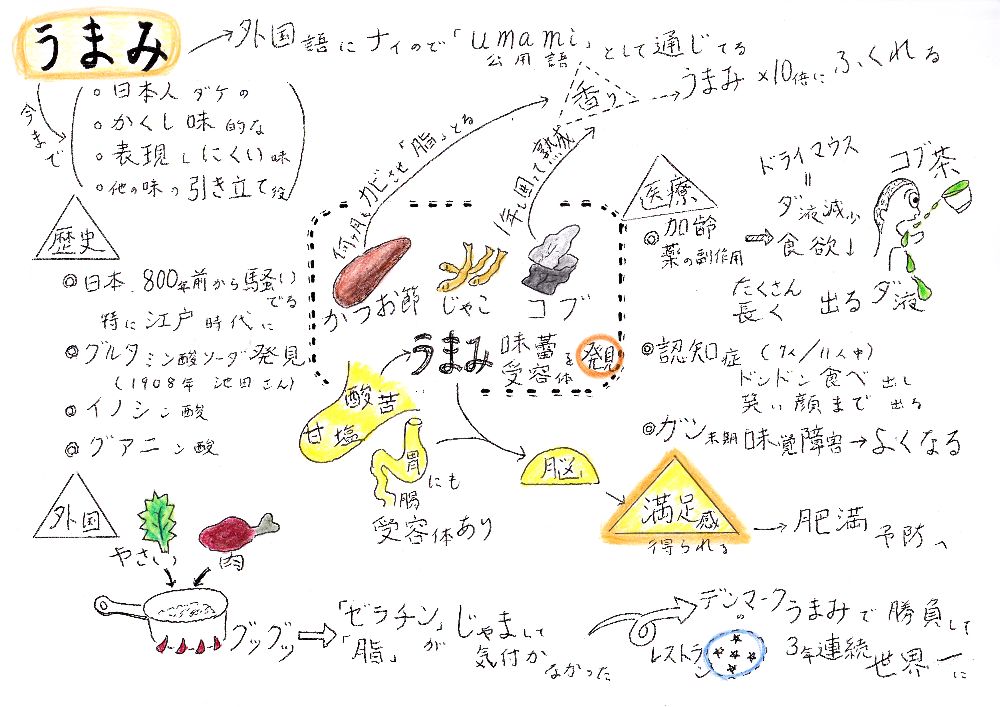 うまみ
外国語にナイので「umami」として通じてる
公用語
今まで
○日本人ダケの
○かくし味的な
○表現しにくい味
○他の味の引き立て役
何ヶ月もカビさせ「脂」とる
1年も囲って熟成
香り
うまみ×10倍にふくれる
歴史
◎日本 800年前から騒いでる
特に江戸時代に
◎グルタミン酸ソーダ発見
(1908年 池田さん)
◎イノシン酸
◎グアニン酸
かつお節
じゃこ
コブ
うまみ
味蕾を
受容体
発見
酸 苦
甘 塩
胃
腸
にも
受容体あり
脳
満足感
得られる
肥満予防へ
医療
◎加齢
薬の副作用
ドライマウス
=
ダ液減少
食欲↓
コブ茶
たくさん
長く
出る
ダ液
◎認知症 (7人/11人中)
ドンドン食べ出し
笑い顔まで出る
◎ガン末期味覚障害→よくなる
外国
やさい
肉
グッグッ
「ゼラチン」
「脂」が
じゃまして
気付か
なかった
デンマークの
レストラン
うまみで勝負して
3年連続
世界一に